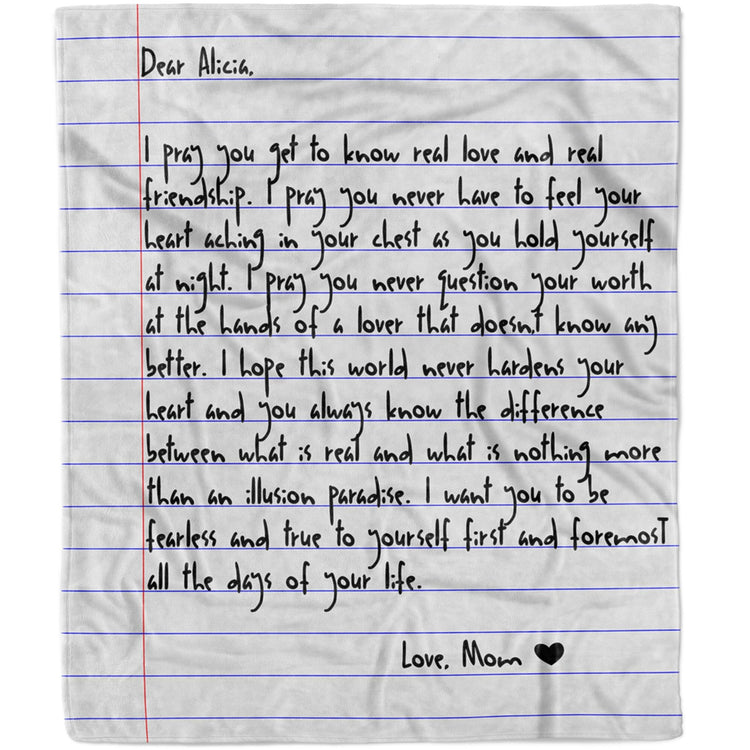 Dear Alicia,
I pray you get to know real love and real
friendship. I pray you never have to feel your
heart aching in your chest as you hold yourself
at night. I pray you never question your worth
at the hands of a lover that doesn't know any
better. I hope this world never hardens your
heart and you always know the difference
between what is real and what is nothing more
than an illusion paradise. I want you to be
fearless and true to yourself first and foremost
all the days of your life.
Love, Mom ♥